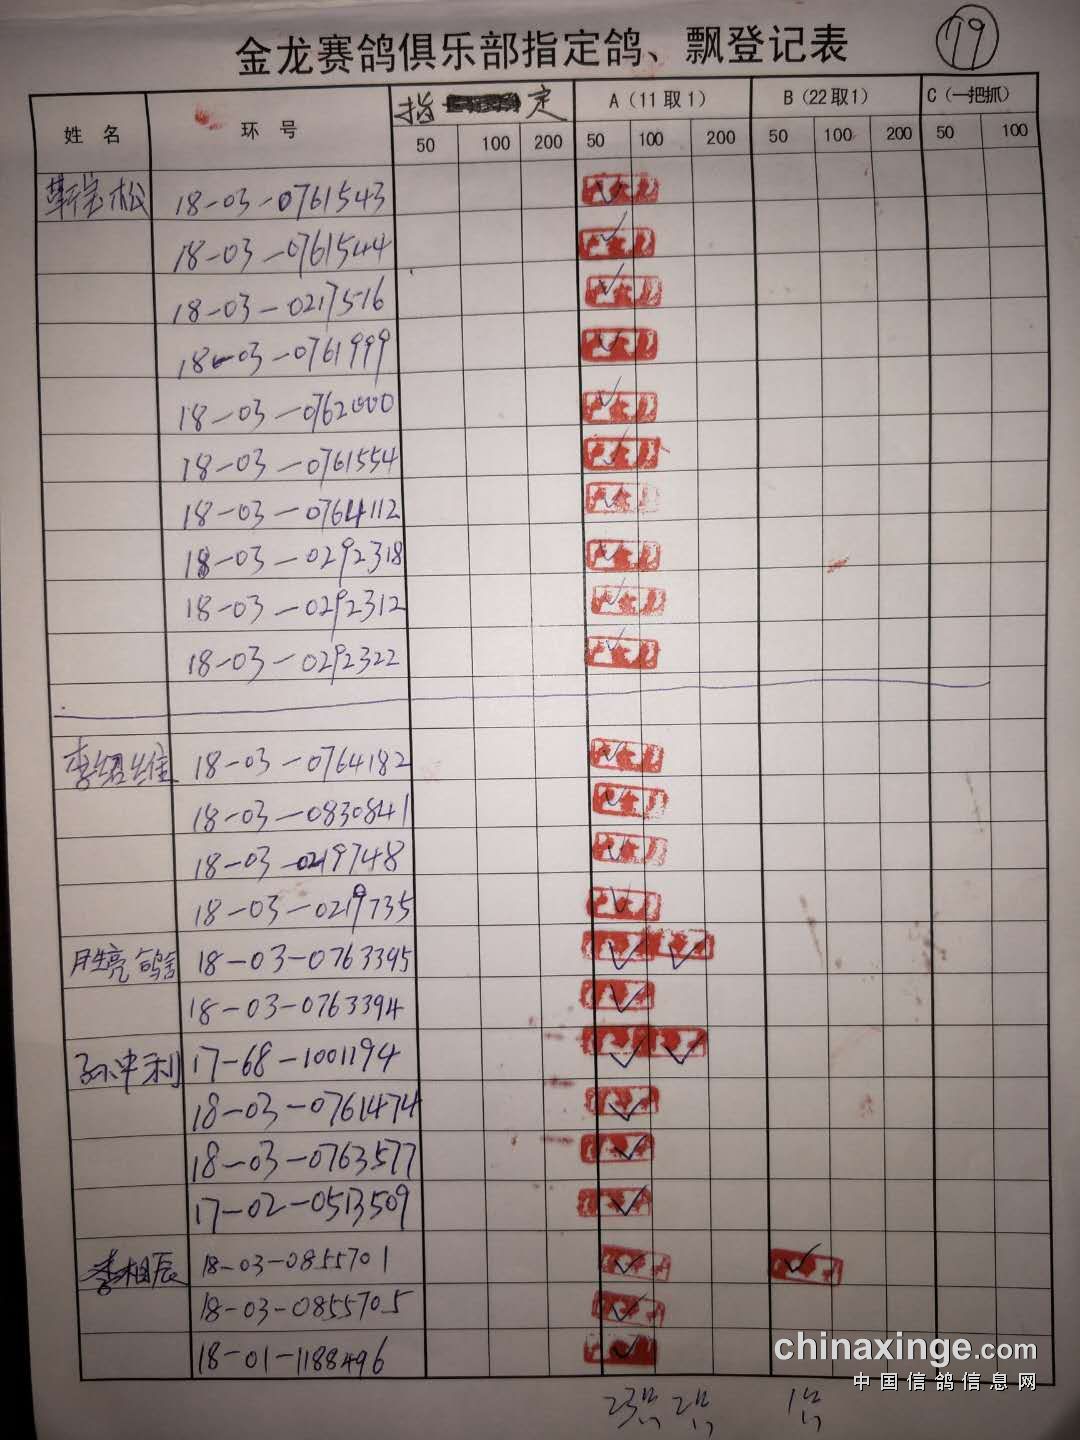 金龙赛鸽俱乐部指定鸽、飘登记表
79
姓 名 环 号 指 定 A（11取1） B（22取1） C（一把抓）
50 100 200 50 100 200 50 100 200 50 100
靳宝松 18-03-0761543
18-03-0761544
18-03-0217516
18-03-0761999
18-03-0762000
18-03-0761554
18-03-0764112
18-03-0292318
18-03-0292312
18-03-0292322
李绍维 18-03-0764182
18-03-0830841
18-03-0219748
18-03-0219735
胜亮鸽舍 18-03-0763395
18-03-0763394
孙冲利 17-68-1001194
18-03-0761474
18-03-0763577
17-02-0513509
李相辰 18-03-0855701
18-03-0855705
18-01-1188496
chinaxinge.com
中国信鸽信息网